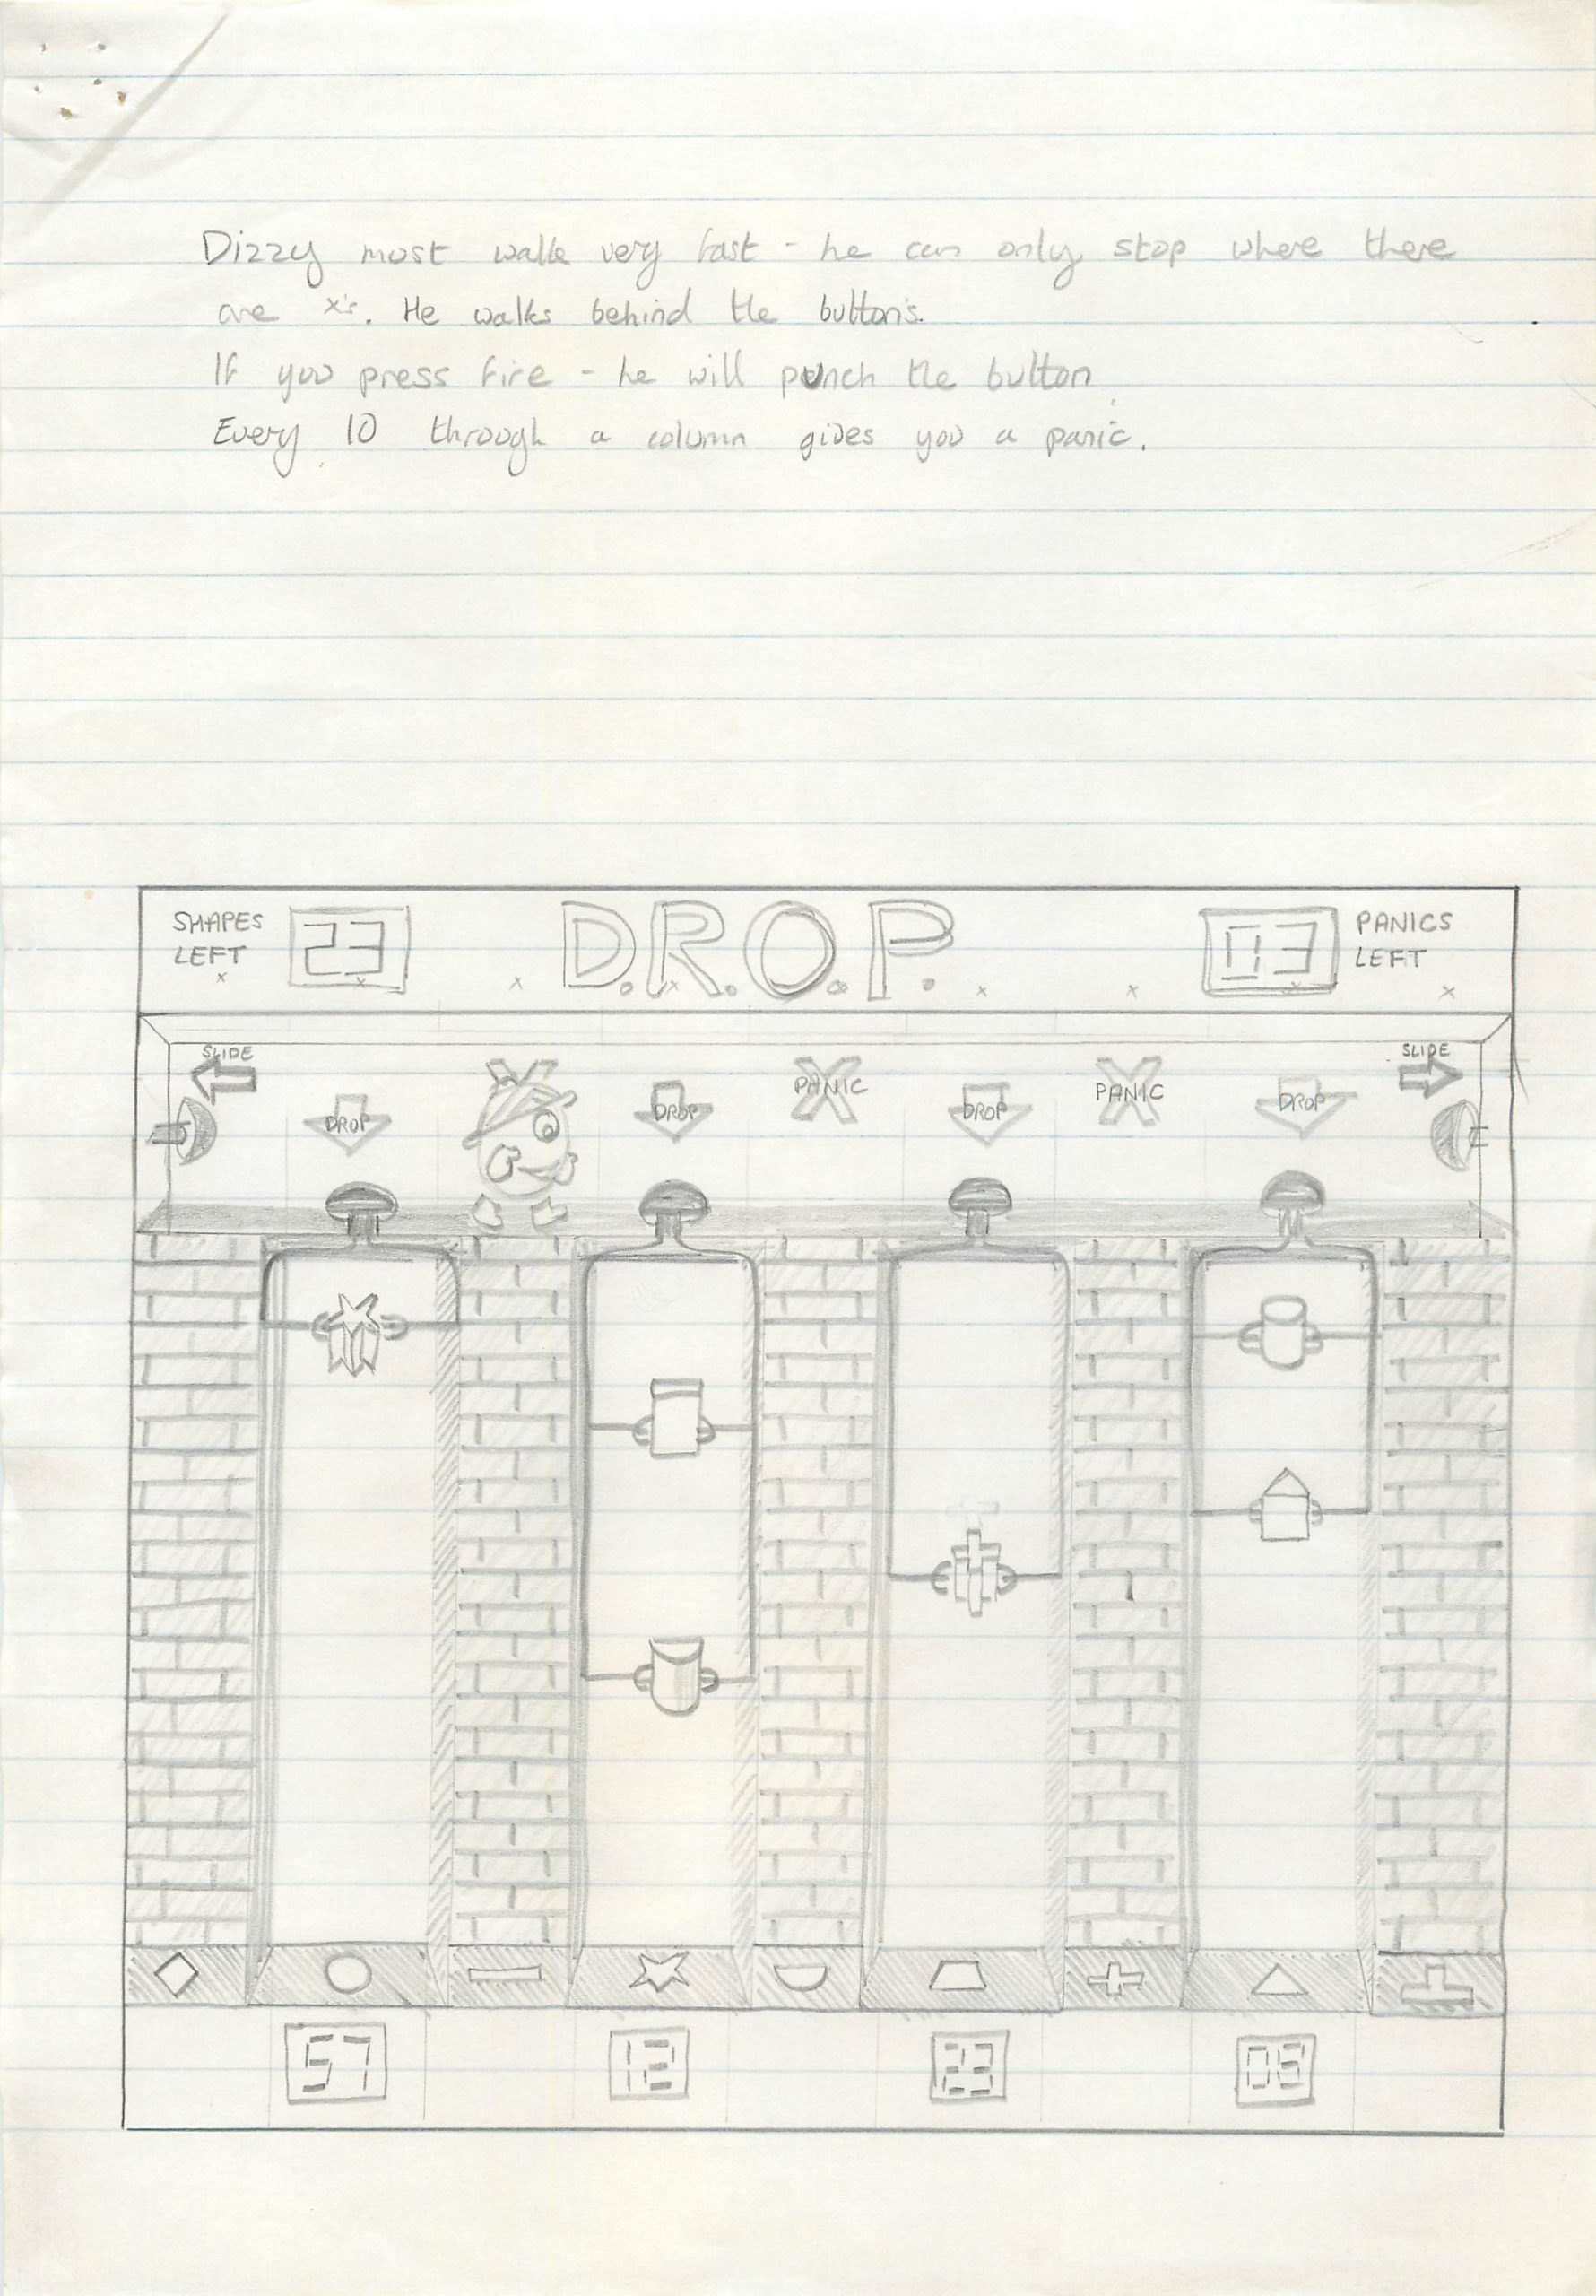 Dizzy must walk very fast - he can only stop where there
are x's. He walks behind the button's.
If you press fire - he will punch the button
Every 10 through a column gives you a panic.
SHAPES LEFT
23
D.R.O.P.
03
PANICS LEFT
x x x x x x x x x
SLIDE
SLIDE
DROP
DROP
PANIC
DROP
PANIC
DROP
57
12
23
03